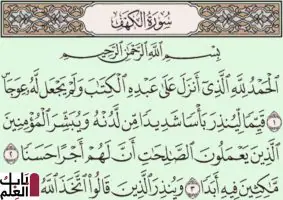 سُورَةُ الْكَهْفِ
بِسْمِ اللَّهِ الرَّحْمَٰنِ الرَّحِيمِ
الْحَمْدُ لِلَّهِ الَّذِي أَنزَلَ عَلَىٰ عَبْدِهِ الْكِتَٰبَ وَلَمْ يَجْعَل لَّهُ عِوَجَا
۝١ قَيِّمًا لِّيُنذِرَ بَأْسًا شَدِيدًا مِّن لَّدُنْهُ وَيُبَشِّرَ الْمُؤْمِنِينَ
الَّذِينَ يَعْمَلُونَ الصَّٰلِحَٰتِ أَنَّ لَهُمْ أَجْرًا حَسَنًا ۝٢
مَّٰكِثِينَ فِيهِ أَبَدًا ۝٣ وَيُنذِرَ الَّذِينَ قَالُوا اتَّخَذَ اللَّهُ
نايك العلم